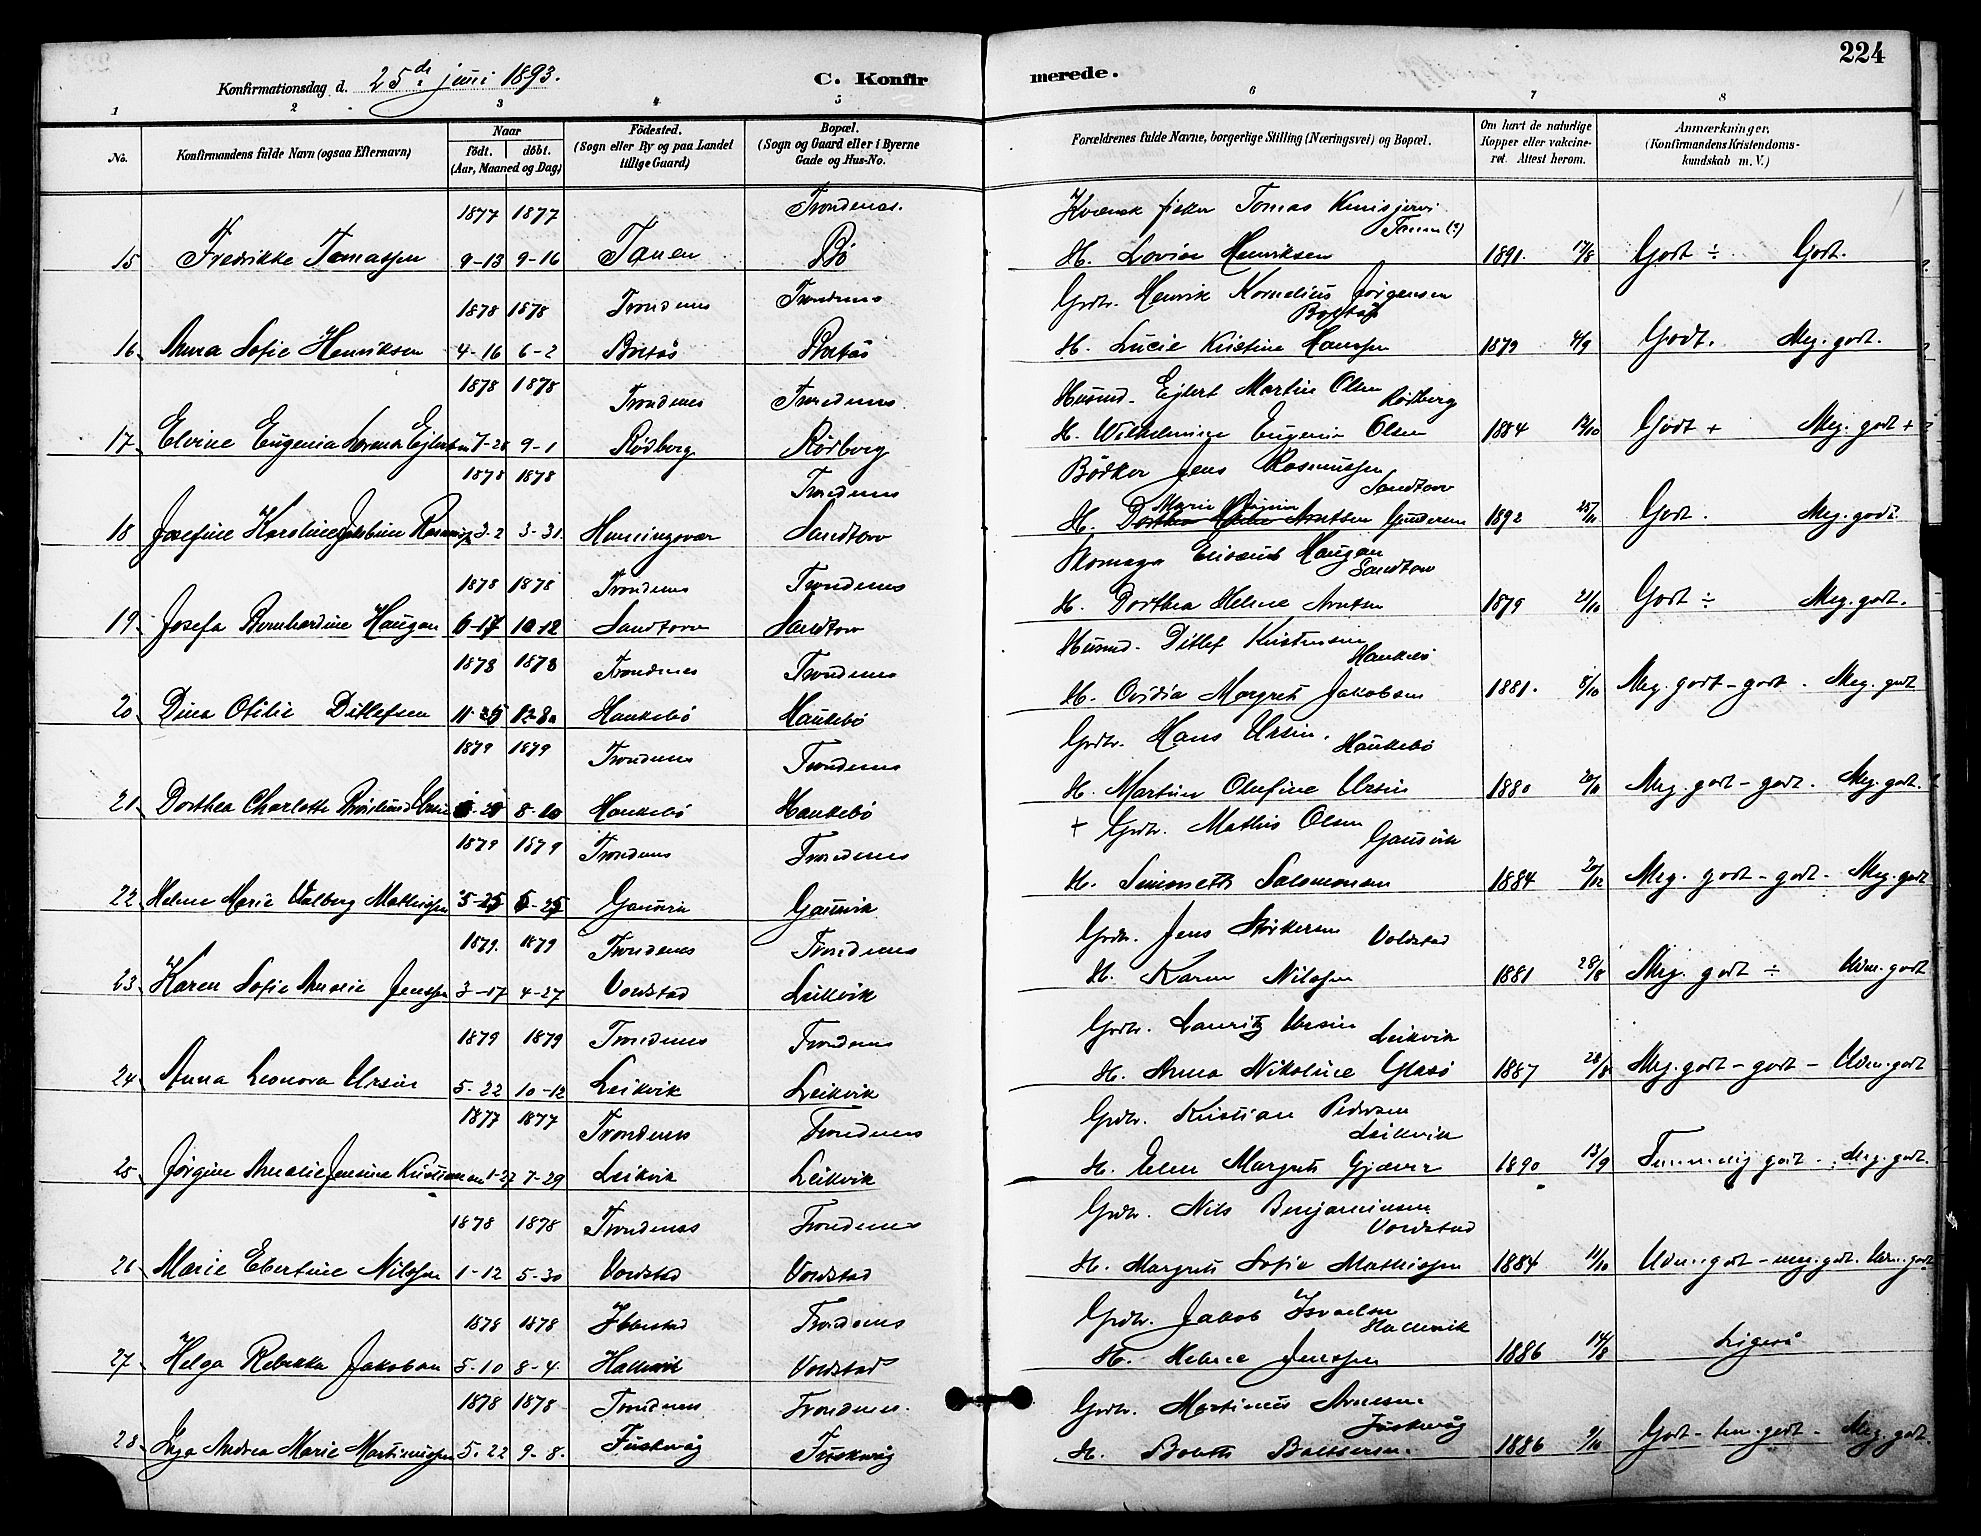 224
Konfirmationsdag d. 25de juni 1893.
C. Konfirmerede.
1 2 3 4 5 6 7 8
No.
Konfirmandens fulde Navn (ogsaa Efternavn)
Naar
födt. döbt.
(Aar, Maaned og Dag)
Födested.
(Sogn eller By og paa Landet
tillige Gaard)
Bopæl.
(Sogn og Gaard eller i Byerne
Gade og Hus-No.
Forældrenes fulde Navne, borgerlige Stilling (Næringsvei) og Bopæl.
Om havt de naturlige
Kopper eller vakcine-
ret. Attest herom.
Anmærkninger.
(Konfirmandens Kristendoms-
kundskab m. V.)
1877 1877 Trondenes. Kvænsk fisker Tomas
Tanen (?)
15 Fredrikke Tomassen 9-13 9-16 Tanen Bö H. Lovise Henriksen 1891. 17/8 Godt ÷ Godt.
1878 1878 Trondenes Trondenes Grdbr. Henrik Kornelius Jørgensen
16 Anna Sofie Henriksen 4-16 6-2 H. Lucie Kristine Hanssen 1879 4/9 Godt. Meg. godt.
1878 1878 Trondenes Trondenes Husmd. Ejlert Martin Olsen
Rödberg
17 Elvine Eugenia Lorensa Ejlertsen 7-28 9-1 Rödberg Rödberg H. Wilhelmine Eugenia Olsen 1884 Godt + Meg. godt +
1878 1878 Trondenes Bödker Jens Rasmussen
Sandtorv
18 Josefine Karoline 3-2 3-31. Henningsvær Sandtorv H. Marie 1892 Godt. Meg. godt.
1878 1878 Trondenes Trondenes Haugan
Sandtorv
19 Josefa Bernhardine Haugan 6-17 10-12 Sandtorv Sandtorv H. Dorthea Helene Arntsen 1879 21/10 Godt ÷ Meg. godt.
1878 1878 Trondenes Trondenes Husmd. Ditlef Kristensen
Haukebö
20 Dina Otilie Ditlefsen 11-25 12-8 Haukebö Haukebö H. Ovidia Margrete Jakobsen 1881. 8/10 Meg. godt - godt. Meg. godt
1879 1879 Trondenes Trondenes Grdbr. Hans Ursin.
Haukebö
21 Dorthea Charlotte 8-10 Haukebö Haukebö H. Martine Olufine Ursin 1880 20/10 Meg. godt - godt. Meg. godt.
1879 1879 Trondenes Trondenes + Grdbr. Mathis Olsen
Gausvik
22 Helene Marie Valborg Mathissen 5-25 Gausvik Gausvik H. Simonette Salomonsen 1884 20/12 Meg. godt - godt - Meg. godt
1879. 1879 Trondenes Trondenes Grdbr. Jens
Voldstad
23 Karen Sofie Amalie Jenssen 3-17 4-27 Voldstad Leikvik H. Karen Nilssen 1881 28/8 Meg. godt ÷ Udm. godt
1879 1879 Trondenes Trondenes Grdbr. Lauritz Ursin
Leikvik
24 Anna Leonora Ursin 5-22 10-12 Leikvik Leikvik H. Anna Nikoline Glasö 1887 28/8 Meg. godt - godt - Udm. godt
1877 1877 Trondenes Trondenes Grdbr. Kristian Pedersen
Leikvik
25 Jörgine Amalie Jensine Kristiansen 1-27 7-29 Leikvik Leikvik H. Elen Margrete Gjæver 1890 13/9 Temmelig godt - Meg. godt.
1878 1878 Trondenes Trondenes Grdbr. Nils Benjaminsen
Voldstad
26 Marie Ebertine Nilssen 1-12 5-30 Voldstad Voldstad H. Margrete Sofie Mathissen 1884 11/10 Udm. godt - meg. godt. Udm. godt
1878 1878 Ibbestad Trondenes Grdbr. Jakob Israelsen
Hallevik
27 Helga Rebekka Jakobsen 5-10 8-4 Hallevik Voldstad H. Helene Jenssen 1886 14/8 Ligesaa
1878 1878 Trondenes Trondenes. Grdbr. Martinus Arnesen
Fuskevåg
28 Inga Andrea Marie Martinussen 5-22 9-8. Fuskevåg Fuskevåg H. Baltsersen. 1886 9/10 Godt - tem. godt - Meg. godt.